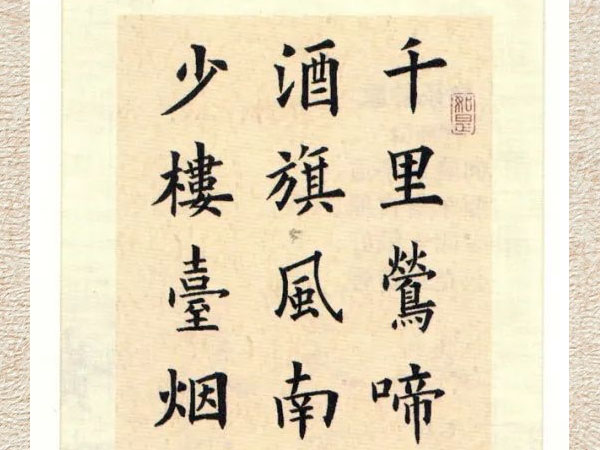 千里鶯啼
酒旗風南
少樓臺烟
如是